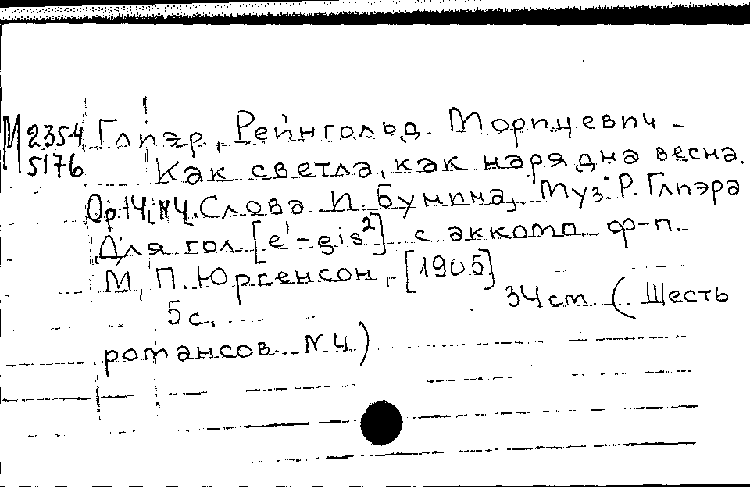 М 2354 Глиэр, Рейнгольд Морицевич -
5176 Как светла, как нарядна весна.
Op. 14, № 4. Слова И. Бунина, Муз. Р. Глиэра
Для гол. [e' - gis²] с аккомп. ф-п.
М., П. Юргенсон, [1905]
5 с. 34 cm. (Шесть
романсов № 4)